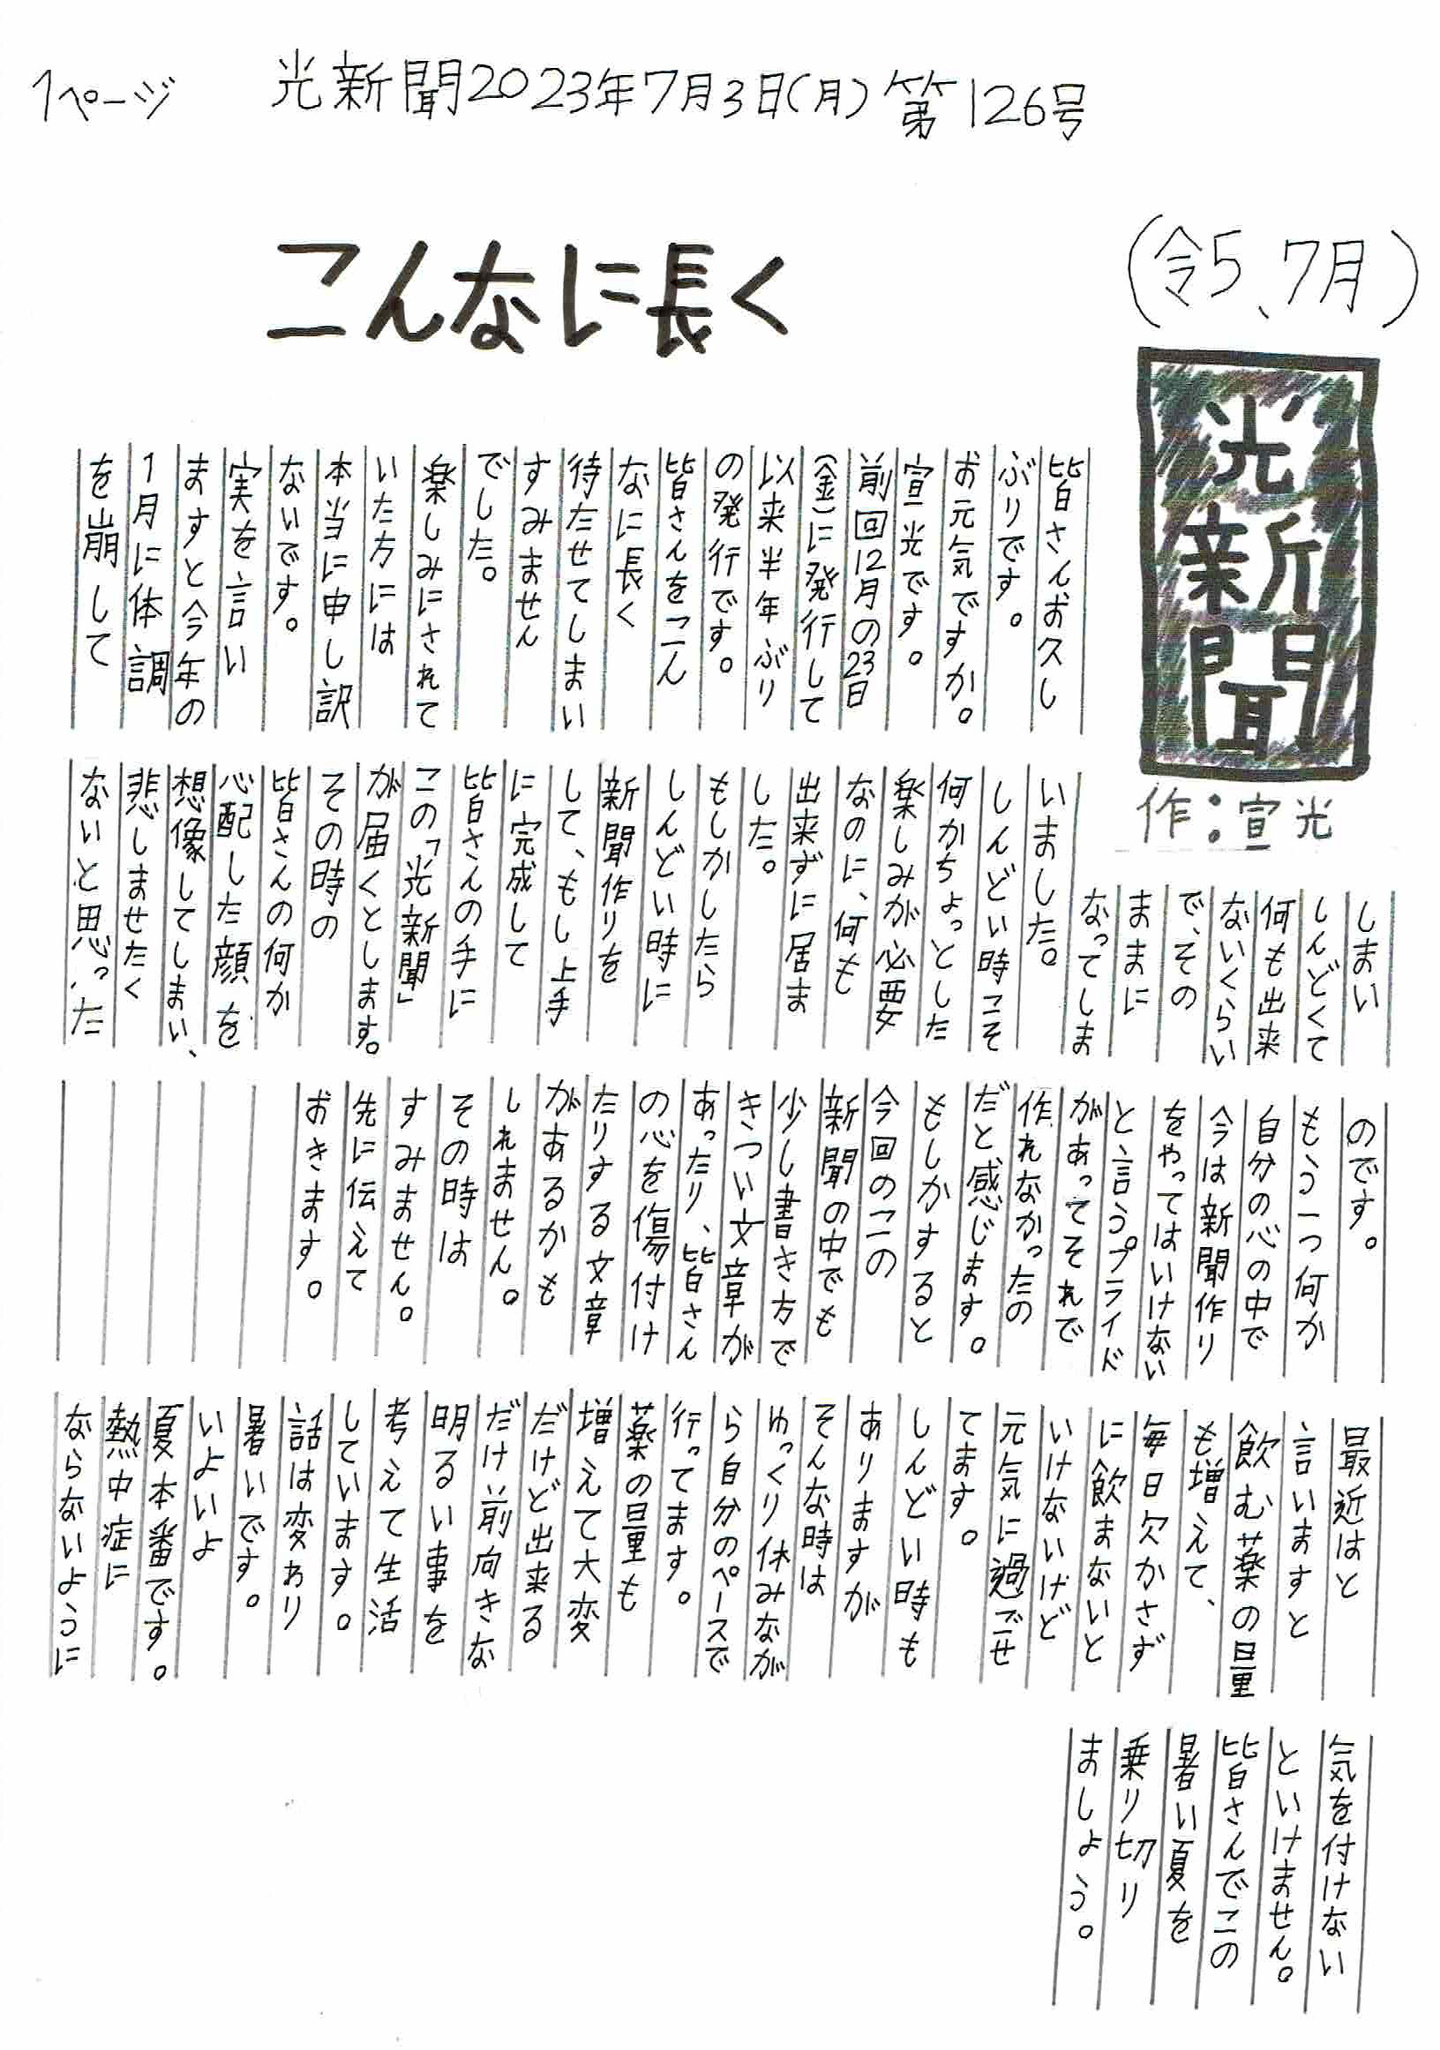 1ページ 光新聞2023年7月3日(月)第126号
(令5、7月)
光新聞
作:宣光
こんなに長く
皆さん、お久し
ぶりです。
お元気ですか。
宣光です。
前回12月の23日
(金)に発行して
以来半年ぶり
の発行です。
皆さんをこん
なに長く
待たせてしまい
すみません
でした。
楽しみにされて
いた方には
本当に申し訳
ないです。
実を言い
ますと今年の
1月に体調
を崩して
しまい
しんどくて
何も出来
ないくらい
で、その
ままに
なってしま
いました。
しんどい時こそ
何かちょっとした
楽しみが必要
なのに、何も
出来ずに居ま
した。
もしかしたら
しんどい時に
新聞作りを
して、もし上手
に完成して
皆さんの手に
この「光新聞」
が届くとします。
その時の
皆さんの何か
心配した顔を
想像してしまい、
悲しませたく
ないと思った
のです。
もう一つ何か
自分の心の中で
今は新聞作り
をやってはいけない
と言うプライド
があってそれで
作れなかったの
だと感じます。
もしかすると
今回のこの
新聞の中でも
少し書き方で
きつい文章が
あったり、皆さん
の心を傷付け
たりする文章
があるかも
しれません。
その時は
すみません。
先に伝えて
おきます。
最近はと
言いますと
飲む薬の量
も増えて、
毎日欠かさず
に飲まないと
いけないけど
元気に過ごせ
てます。
しんどい時も
ありますが
そんな時は
ゆっくり休みなが
ら自分のペースで
行ってます。
薬の量も
増えて大変
だけど出来る
だけ前向きな
明るい事を
考えて生活
しています。
話は変わり
暑いです。
いよいよ
夏本番です。
熱中症に
ならないように
気を付けない
といけません。
皆さんでこの
暑い夏を
乗り切り
ましょう。